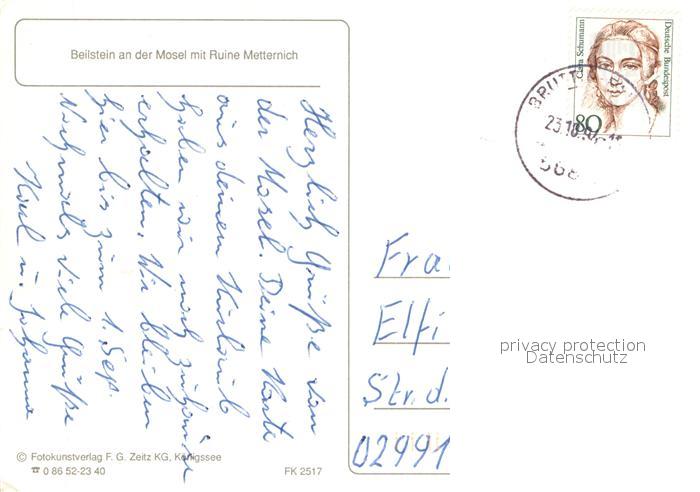 Beilstein an der Mosel mit Ruine Metternich
Herzlich Grüße von
der Mosel. Deine Karte
aus deinen Urlaub
haben wir noch zuhause
erhalten. Wir bleiben
hier bis zum 1. Sep.
Nochmals viele Grüße
Karl u. Johanna
© Fotokunstverlag F. G. Zeitz KG, Königssee
☎ 0 86 52-23 40
FK 2517
Clara Schumann
Deutsche Bundespost
80
BRUTT
23.10.
568
Fra
Elfi
Str. d.
02991
privacy protection
Datenschutz